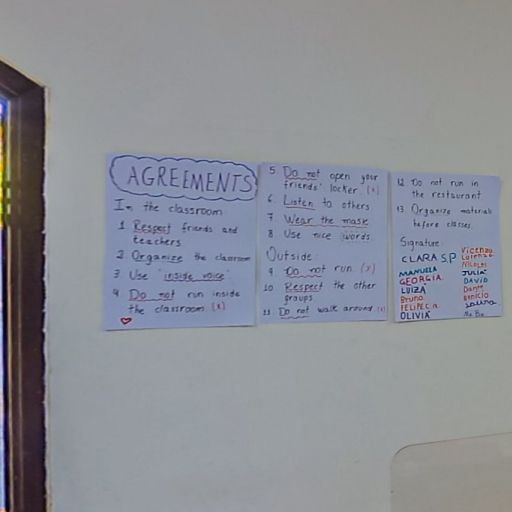 AGREEMENTS
In the classroom:
1 Respect friends and
teachers
2 Organize the classroom
3 Use "inside voice"
4 Do not run inside
the classroom (x)
5 Do not open your
friends' locker (x)
6 Listen to others
7 Wear the mask
8 Use nice words
Outside:
9 Do not run (x)
10 Respect the other
groups
11 Do not walk around (x)
12 Do not run in
the restaurant
13 Organize materials
before classes
Signature:
CLARA S.P
MANUELA
GEORGIA
LUIZA
Bruno
FELIPE C.A
OLIVIA
Vicenzo
Lorenzo
NICOLAS
JULIA
DAVID
Dante
Vinicio
Laura